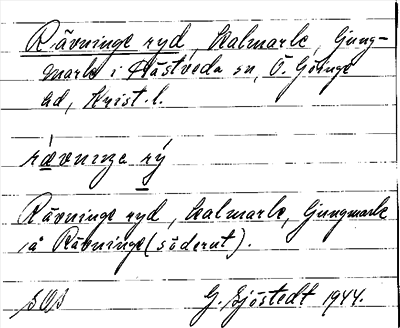 Rävninge ryd, kalmark, Ljung-
mark i Hästveda sn, Ö. Göinge
hd, Krist. l.
rævnɪŋe rý
Rävninge ryd, kalmark, Ljungmark
å Rävninge (söderut).
SOS G. Sjöstedt 1944.